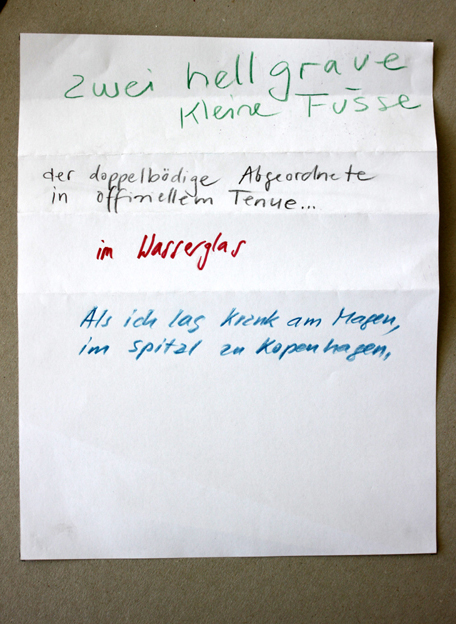 zwei hellgraue
kleine Füsse
der doppelbödige Abgeordnete
in offiziellem Tenue...
im Wasserglas
Als ich lag krank am Magen,
im Spital zu Kopenhagen,